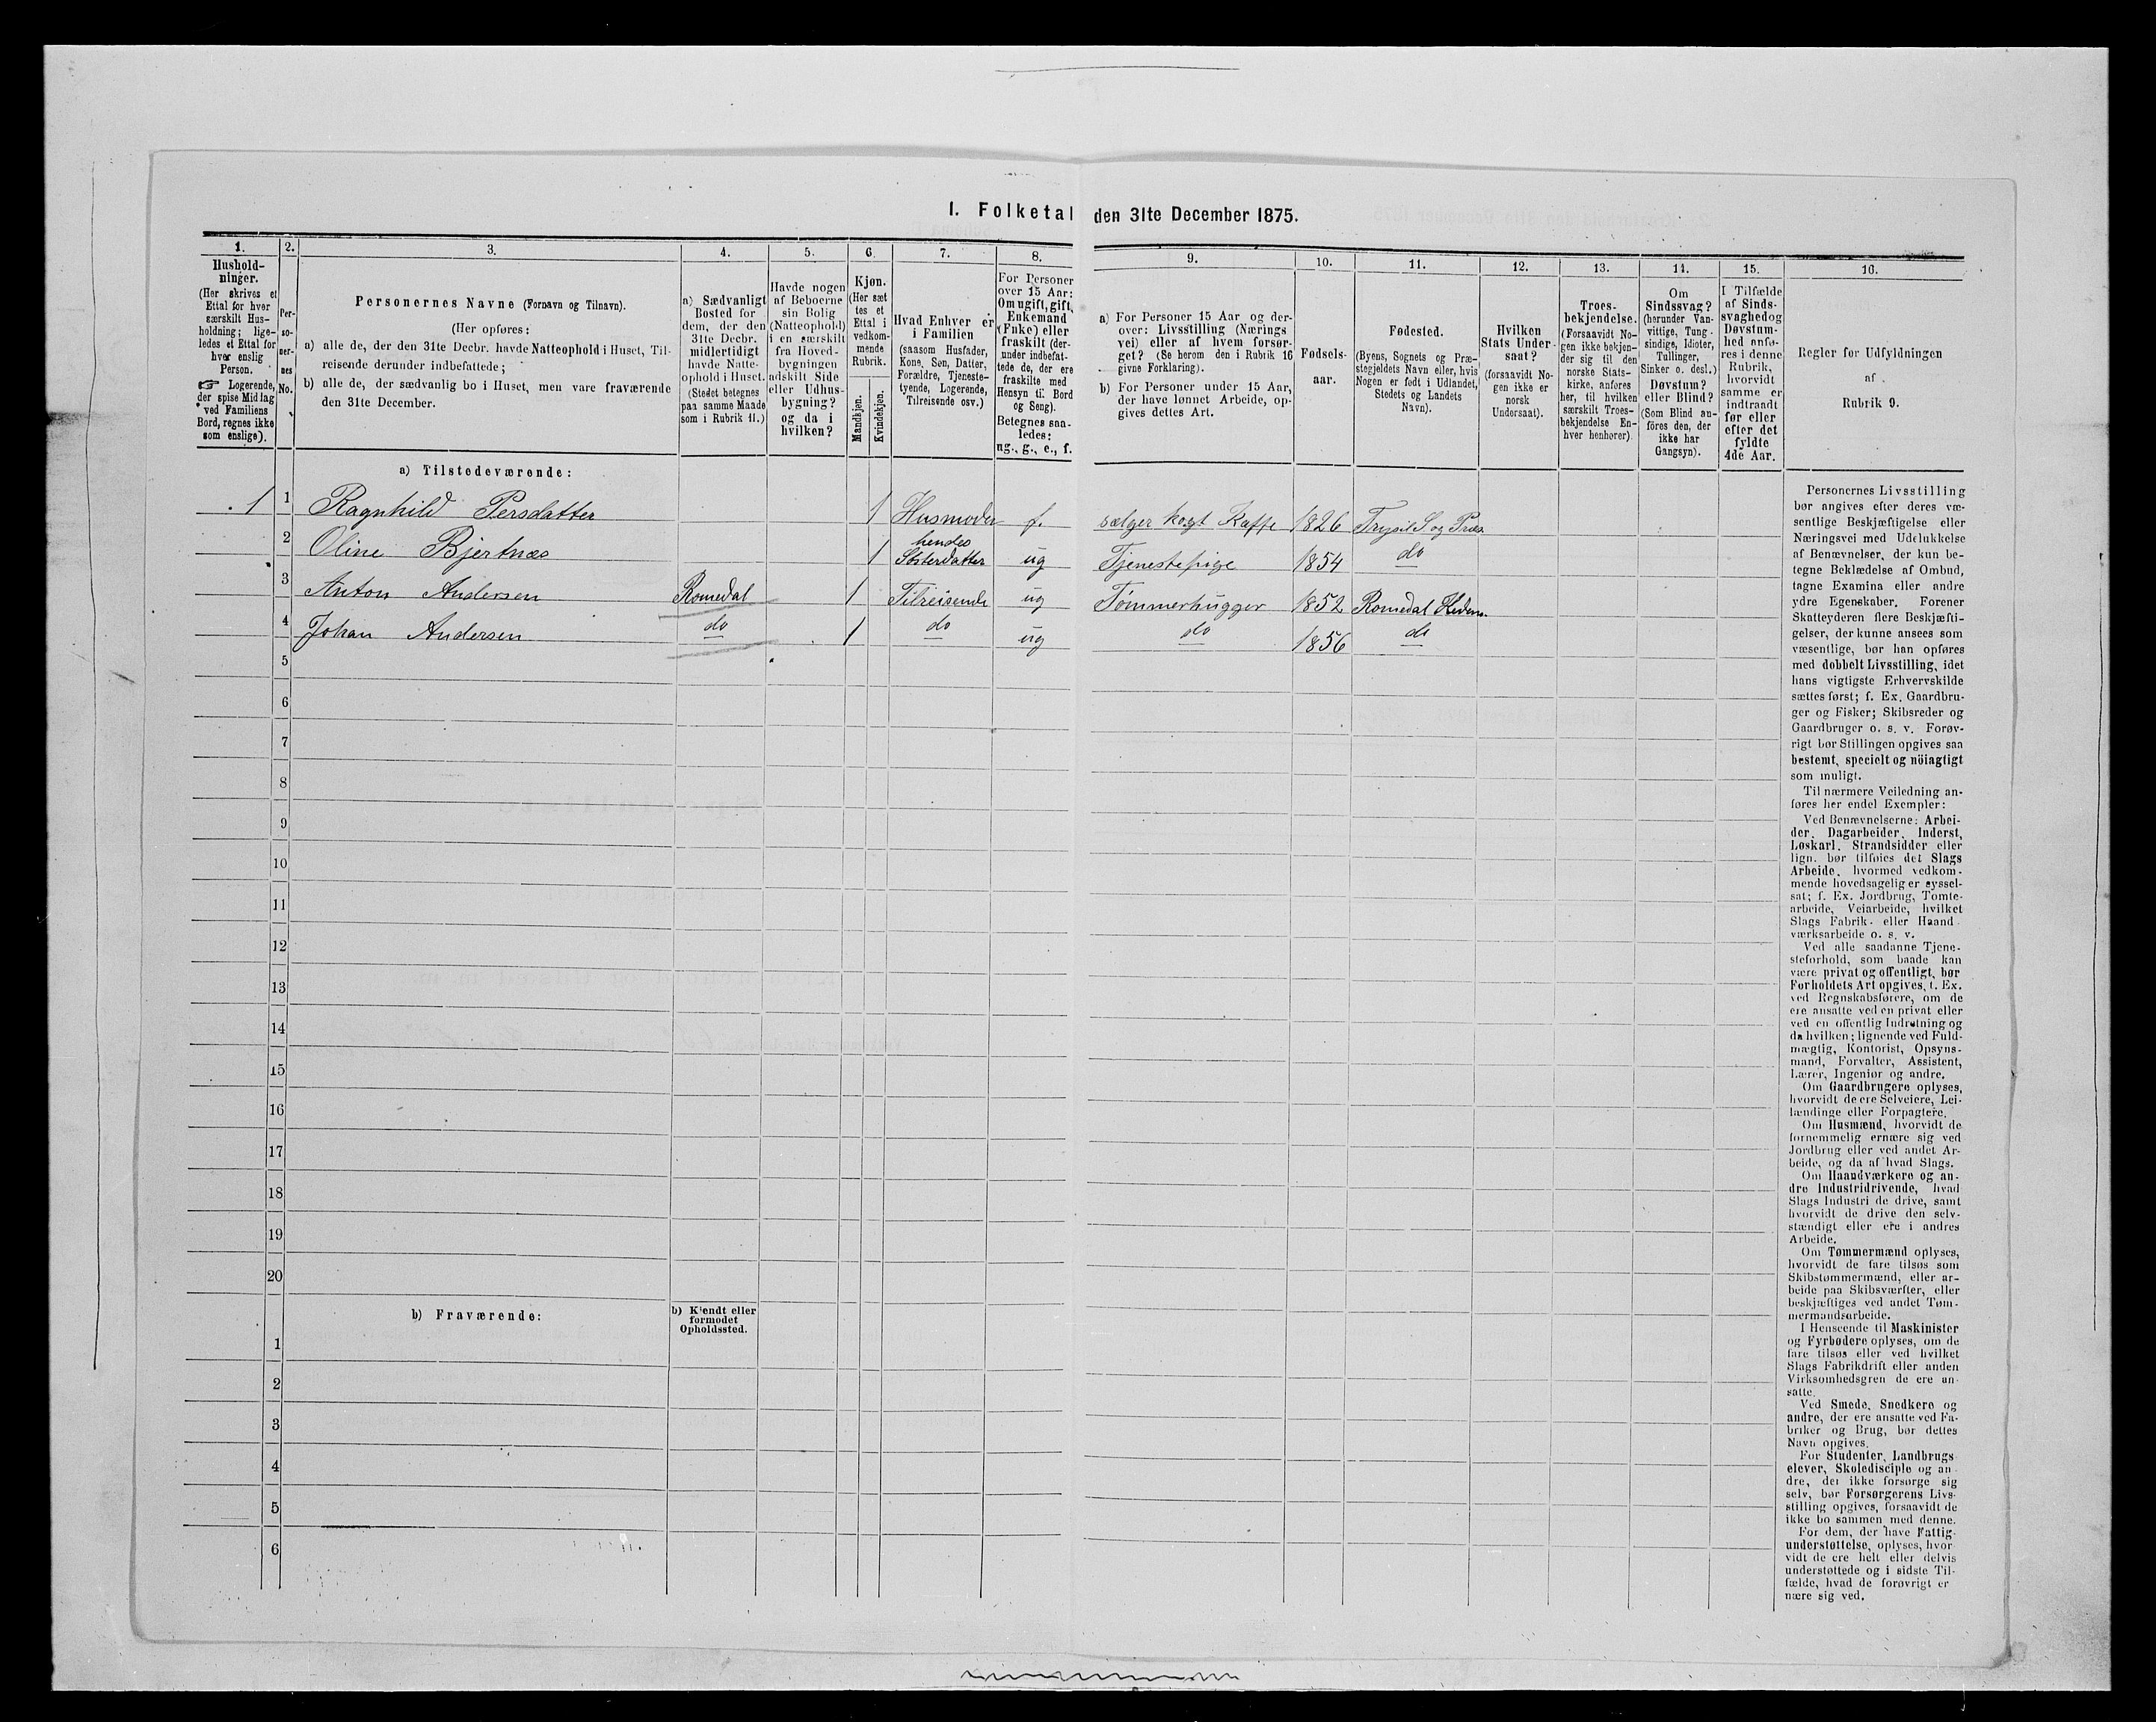 1. Folketal den 31te December 1875.
1.
Hushold-
ninger.
(Her skrives et
Ettal for hver
særskilt Hus-
holdning; lige-
ledes et Ettal for
hver enslig
Person.
☞ Logerende,
der spise Middag
ved Familiens
Bord, regnes ikke
som enslige).
2.
Per-
so-
ner-
nes
No.
3.
Personernes Navne (Fornavn og Tilnavn).
(Her opføres:
a) alle de, der den 31te Decbr. havde Natteophold i Huset, Til-
reisende derunder indbefattede;
b) alle de, der sædvanlig bo i Huset, men vare fraværende
den 31te December.
4.
a) Sædvanligt
Bosted for
dem, der den
31te Decbr.
midlertidigt
havde Natte-
ophold i Huset.
(Stedet betegnes
paa samme Maade
som i Rubrik 11.)
5.
Havde nogen
af Beboerne
sin Bolig
(Natteophold)
i en særskilt
fra Hoved-
bygningen
adskilt Side
eller Udhus-
bygning?
og da i
hvilken?
6.
Kjøn.
(Her sæt
tes et
Ettal i
vedkom-
mende
Rubrik.
Mandkjøn.
Kvindekjøn.
7.
Hvad Enhver er
i Familien
(saasom Husfader,
Kone, Søn, Datter,
Forældre, Tjeneste-
tyende, Logerende,
Tilreisende osv.)
8.
For Personer
over 15 Aar:
Om ugift, gift,
Enkemand
(Enke) eller
fraskilt (der-
under indbefat-
tede de, der ere
fraskilte med
Hensyn til Bord
og Seng).
Betegnes saa-
ledes:
ug., g., e., f.
9.
a) For Personer 15 Aar og der-
over: Livsstilling (Nærings
vei) eller af hvem forsør-
get? (Se herom den i Rubrik 16
givne Forklaring).
b) For Personer under 15 Aar,
der have lønnet Arbeide, op-
gives dettes Art.
10.
Fødsels-
aar.
11.
Fødested.
(Byens, Sognets og Præ-
stegjeldets Navn eller, hvis
Nogen er født i Udlandet,
Stedets og Landets
Navn).
12.
Hvilken
Stats Under-
saat?
(forsaavidt No-
gen ikke er
norsk
Undersaat).
13.
Troes-
bekjendelse.
(Forsaavidt No-
gen ikke bekjen-
der sig til den
norske Stats-
kirke, anføres
her, til hvilken
særskilt Troes-
bekjendelse En-
hver henhører).
14.
Om
Sindssvag?
(herunder Van-
vittige, Tung-
sindige, Idioter,
Tullinger,
Sinker o. desl.)
Døvstum?
eller Blind?
(Som Blind an-
føres den, der
ikke har
Gangsyn).
15.
I Tilfælde
af Sinds-
svaghed og
Døvstum-
hed anfø-
res i denne
Rubrik,
hvorvidt
samme er
indtraadt
før eller
efter det
fyldte
4de Aar.
16.
Regler for Udfyldningen
af
Rubrik 9.
a) Tilstedeværende:
1 1 Ragnhild Persdatter 1 Husmoder f. sælger kogt Kaffe 1826 Trysil S og Præs
2 Oline Bjertnæs 1 hendes Søsterdatter ug Tjenestepige 1854 do
3 Anton Andersen Romedal 1 Tilreisende ug Tømmerhugger 1852 Romedal Hedem.
4 Johan Andersen do 1 do ug do 1856 do
5
6
7
8
9
10
11
12
13
14
15
16
17
18
19
20
b) Fraværende:
b) Kjendt eller
formodet
Opholdssted.
1
2
3
4
5
6
Personernes Livsstilling
bør angives efter deres væ-
sentlige Beskjæftigelse eller
Næringsvei med Udelukkelse
af Benævnelser, der kun be-
tegne Beklædelse af Ombud,
tagne Examina eller andre
ydre Egenskaber. Forener
Skatteyderen flere Beskjæfti-
gelser, der kunne ansees som
væsentlige, bør han opføres
med dobbelt Livsstilling, idet
hans vigtigste Erhvervskilde
sættes først; f. Ex. Gaardbru-
ger og Fisker; Skibsreder og
Gaardbruger o. s. v. Forøv-
rigt bør Stillingen opgives saa
bestemt, specielt og nöiagtigt
som muligt.
Til nærmere Veiledning an-
føres her endel Exempler:
Ved Benævnelserne: Arbei-
der, Dagarbeider, Inderst,
Løskarl, Strandsidder eller
lign. bør tilføies det Slags
Arbeide, hvormed vedkom-
mende hovedsagelig er syssel-
sat; f. Ex. Jordbrug, Tomte-
arbeide, Veiarbeide, hvilket
Slags Fabrik- eller Haand-
værksarbeide o. s. v.
Ved alle saadanne Tjene-
steforhold, som baade kan
være privat og offentligt, bør
Forholdets Art opgives, f. Ex.
ved Regnskabsførere, om de
ere ansatte ved en privat eller
ved en offentlig Indretning og
da hvilken; lignende ved Fuld-
mægtig, Kontorist, Opsyns-
mand, Forvalter, Assistent,
Lærer, Ingeniør og andre.
Om Gaardbrugere oplyses,
hvorvidt de ere Selveiere, Lei-
lændinge eller Forpagtere.
Om Husmænd, hvorvidt de
fornemmelig ernære sig ved
Jordbrug eller ved andet Ar-
beide, og da af hvad Slags.
Om Haandværkere og an-
dre Industridrivende, hvad
Slags Industri de drive, samt
hvorvidt de drive den selv-
stændigt eller ere i andres
Arbeide.
Om Tømmermænd oplyses,
hvorvidt de fare tilsøs som
Skibstømmermænd, eller ar-
beide paa Skibsværfter, eller
beskjæftiges ved andet Tøm-
mermandsarbeide.
I Henseende til Maskinister
og Fyrbødere oplyses, om de
fare tilsøs eller ved hvilket
Slags Fabrikdrift eller anden
Virksomhedsgren de ere an-
satte.
Ved Smede, Snedkere og
andre, der ere ansatte ved Fa-
briker og Brug, bør dettes
Navn opgives.
For Studenter, Landbrugs-
elever, Skoledisciple og an-
dre, der ikke forsørge sig
selv, bør Forsørgerens Livs-
stilling opgives, forsaavidt de
ikke bo sammen med denne.
For dem, der have Fattig-
understøttelse, oplyses, hvor
vidt de ere helt eller delvis
understøttede og i sidste Til-
fælde, hvad de forøvrigt er
nære sig ved.